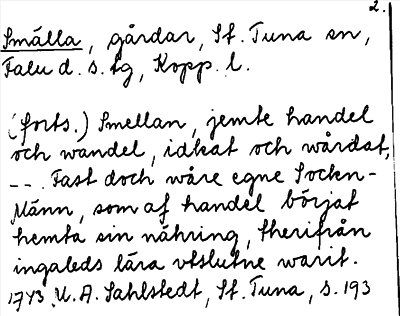 2.
Smälla, gårdar, St. Tuna sn,
Falu d. s. tg, Kopp. l.
(forts.) Smellan, jemte handel
och wandel, idkat och wårdat,
-- . Fast doch wåre egne Sockn-
Männ, som af handel börjat
hemta sin nähring, therifrån
ingaleds lära vtslutne warit.
1743. U. A. Sahlstedt, St. Tuna, s. 193